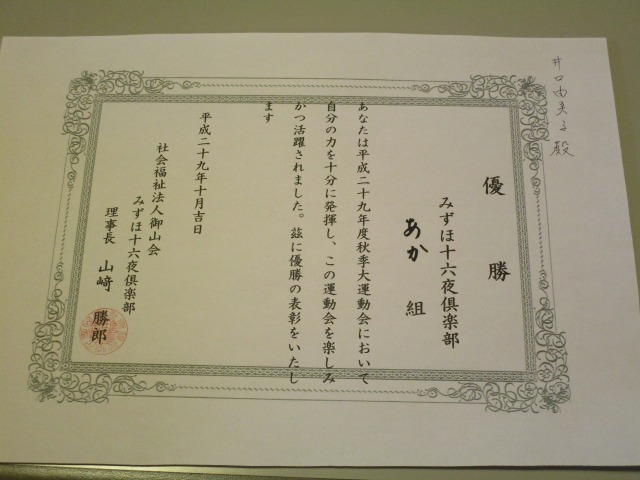 井口由美子殿
優勝
みずほ十六夜倶楽部
あか組
あなたは平成二十九年度秋季大運動会において
自分の力を十分に発揮し、この運動会を楽しみ
かつ活躍されました。茲に優勝の表彰をいたし
ます
平成二十九年十月吉日
社会福祉法人御山会
みずほ十六夜倶楽部
理事長 山﨑 勝郎